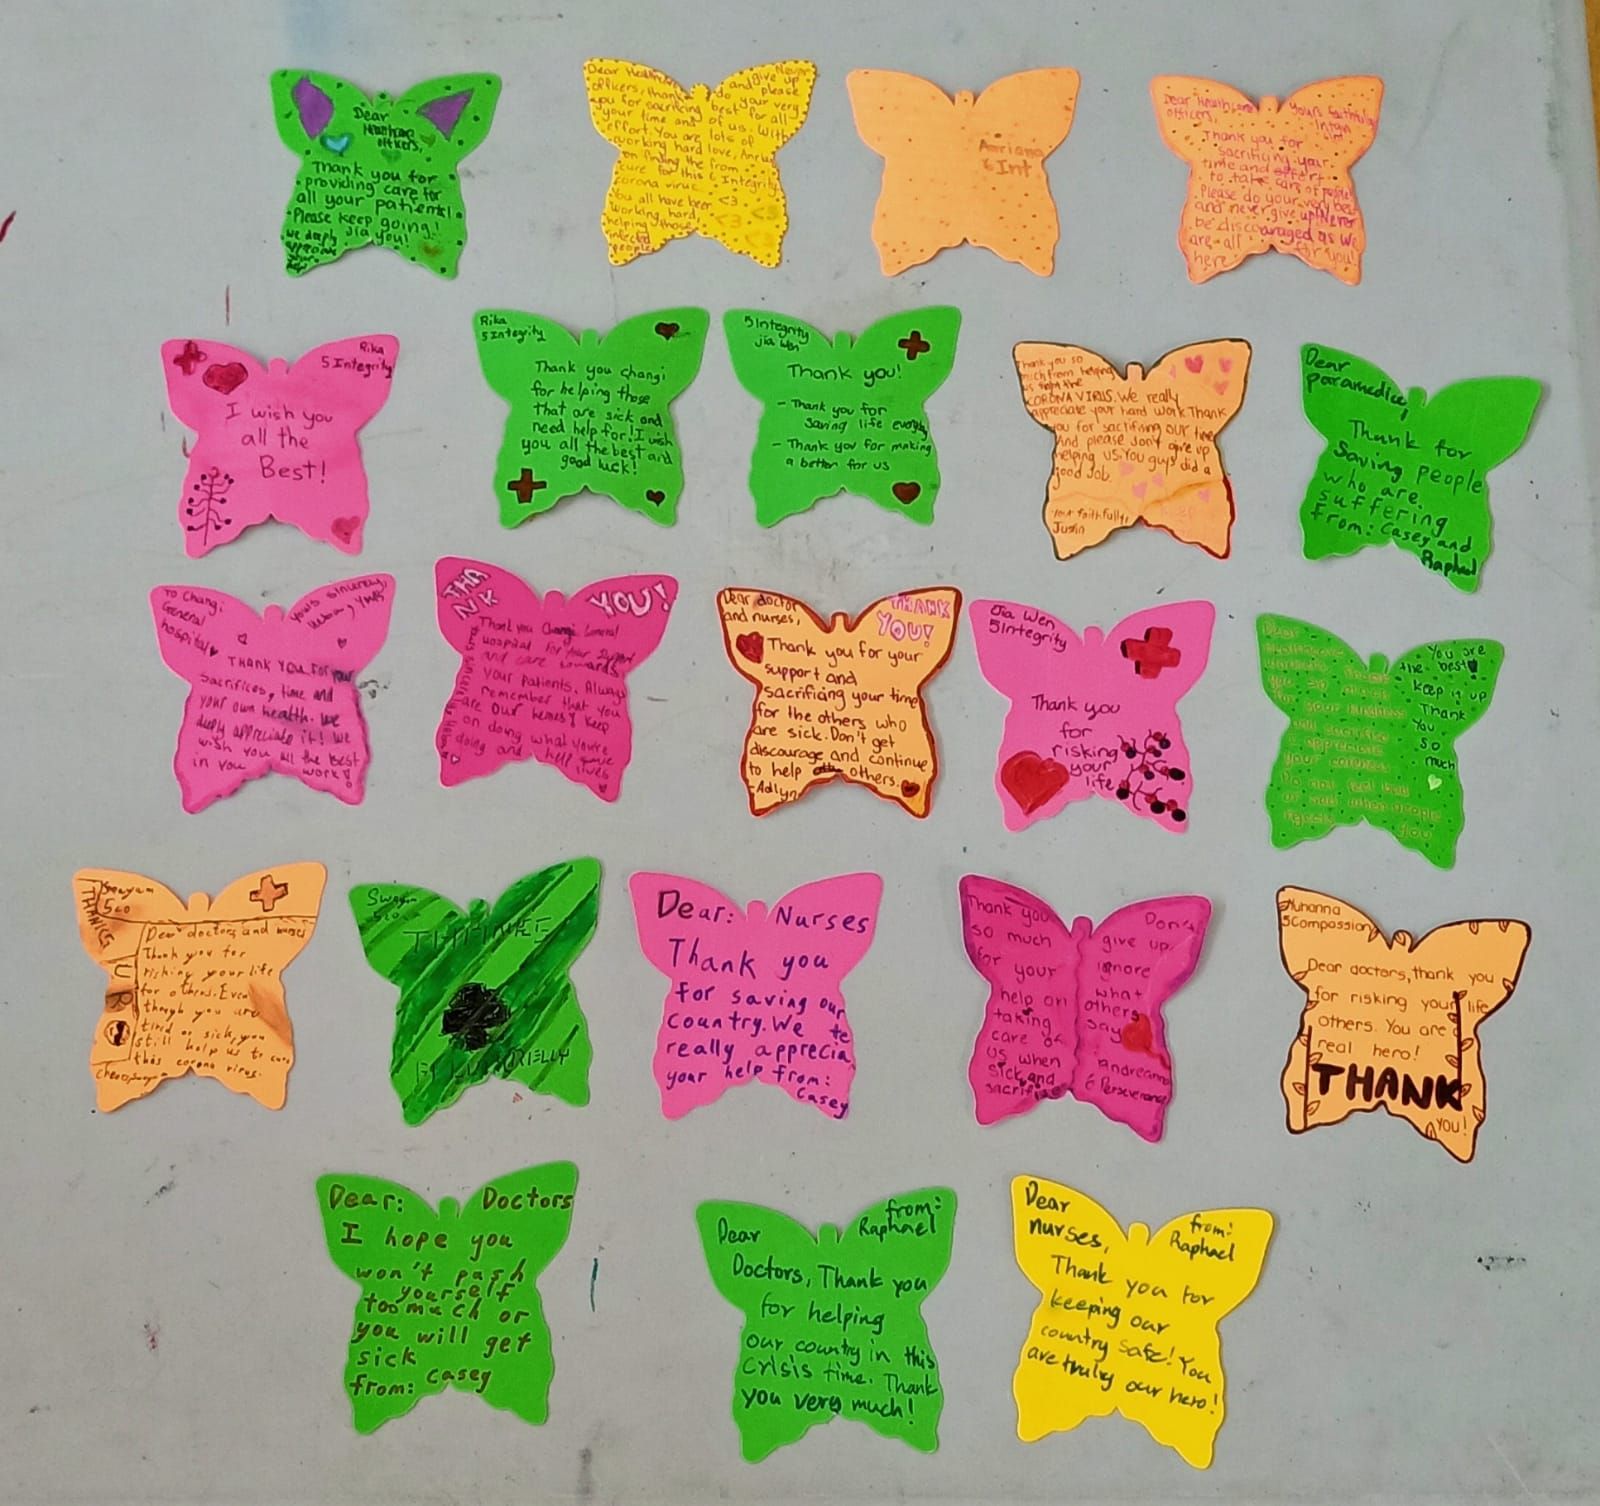 Dear
Healthcare
officers,
Thank you for
providing care for
all your patients!
Please keep going!
Jia You!
we deeply
appreciate
your
help
Dear Healthcare
officers, thank
you for sacrificing
your time and
effort. You are
working hard
on finding the
cure for this
corona virus.
You all have been
working hard,
helping those
infected
people.
Never
and give up
do please
best your very
of us. for all
lots of With
love,
from
6 Integrity
<3
<3 <3
<3
6 Int
Dear Healthcare
officers,
Yours faithfully
Intan
Thank you for
sacrificing your
time and effort
to take care of people
Please do your very best
and never give up! Never
be discouraged as we
are all for you!
here
Rika
5 Integrity
I wish you
all the
Best!
Rika
5 Integrity
Thank you changi
for helping those
that are sick and
need help for! I wish
you all the best and
good luck!
5 Integrity
jia Wen
Thank you!
- Thank you for
saving life everyday
- Thank you for making
a better for us
Thank you so
much from helping
us from the
CORONA VIRUS. We really
appreciate your hard work Thank
you for sacrifising our time
And please don't give up
helping us. You guys did a
good job.
Your faithfully,
Justin
Dear
paramedics,
Thank for
Saving people
who are
suffering
From: Casey and
Raphael
To Changi
General
hospital
Yours sincerely,
THANK YOU FOR your
sacrifices, time and
your own health. We
deeply appreciate it! We
wish you all the best
in you work!
THANK
YOU!
Thank you Changi General
Hospital for your support
and care towards
your patients. Always
remember that you
are our heroes! Keep
on doing what you're
doing and help save
lives
Dear doctor
and nurses,
THANK
YOU!
Thank you for your
support and
sacrificing your time
for the others who
are sick. Don't get
discourage and continue
to help others.
-Adlyn
Jia Wen
5 Integrity
Thank you
for
risking
your
life
Dear
Healthcare
workers, Thank
you so much
for your kindness
and sacrifise
I appreciate
your
Do not feel bad
or sad when people
rejects you
You are
the best!
keep it up
Thank
You
so
much
Swayam
5co
THANKS
U
R
Dear doctors and nurses
Thank you for
risking your life
for others. Even
though you are
tired or sick, you
still help us to cure
this corona virus.
Swayam
5co
THANKS
Dear: Nurses
Thank you
for saving our
country. We te
really apprecia
your help from:
Casey
Thank you
so much
for your
help on
taking
care of
us when
sick and
sacrifise
Don't
give up
ignore
what
others
say
andreanna
6 Perseverance
Muhanna
5Compassion
Dear doctors, thank you
for risking your life
others. You are
real hero!
THANK
YOU!
Dear: Doctors
I hope you
won't push
yourself
too much or
you will get
sick
from: Casey
from:
Raphael
Dear
Doctors, Thank you
for helping
our country in this
crisis time. Thank
you very much!
Dear
nurses,
from:
Raphael
Thank you for
keeping our
country safe! You
are truly our hero!